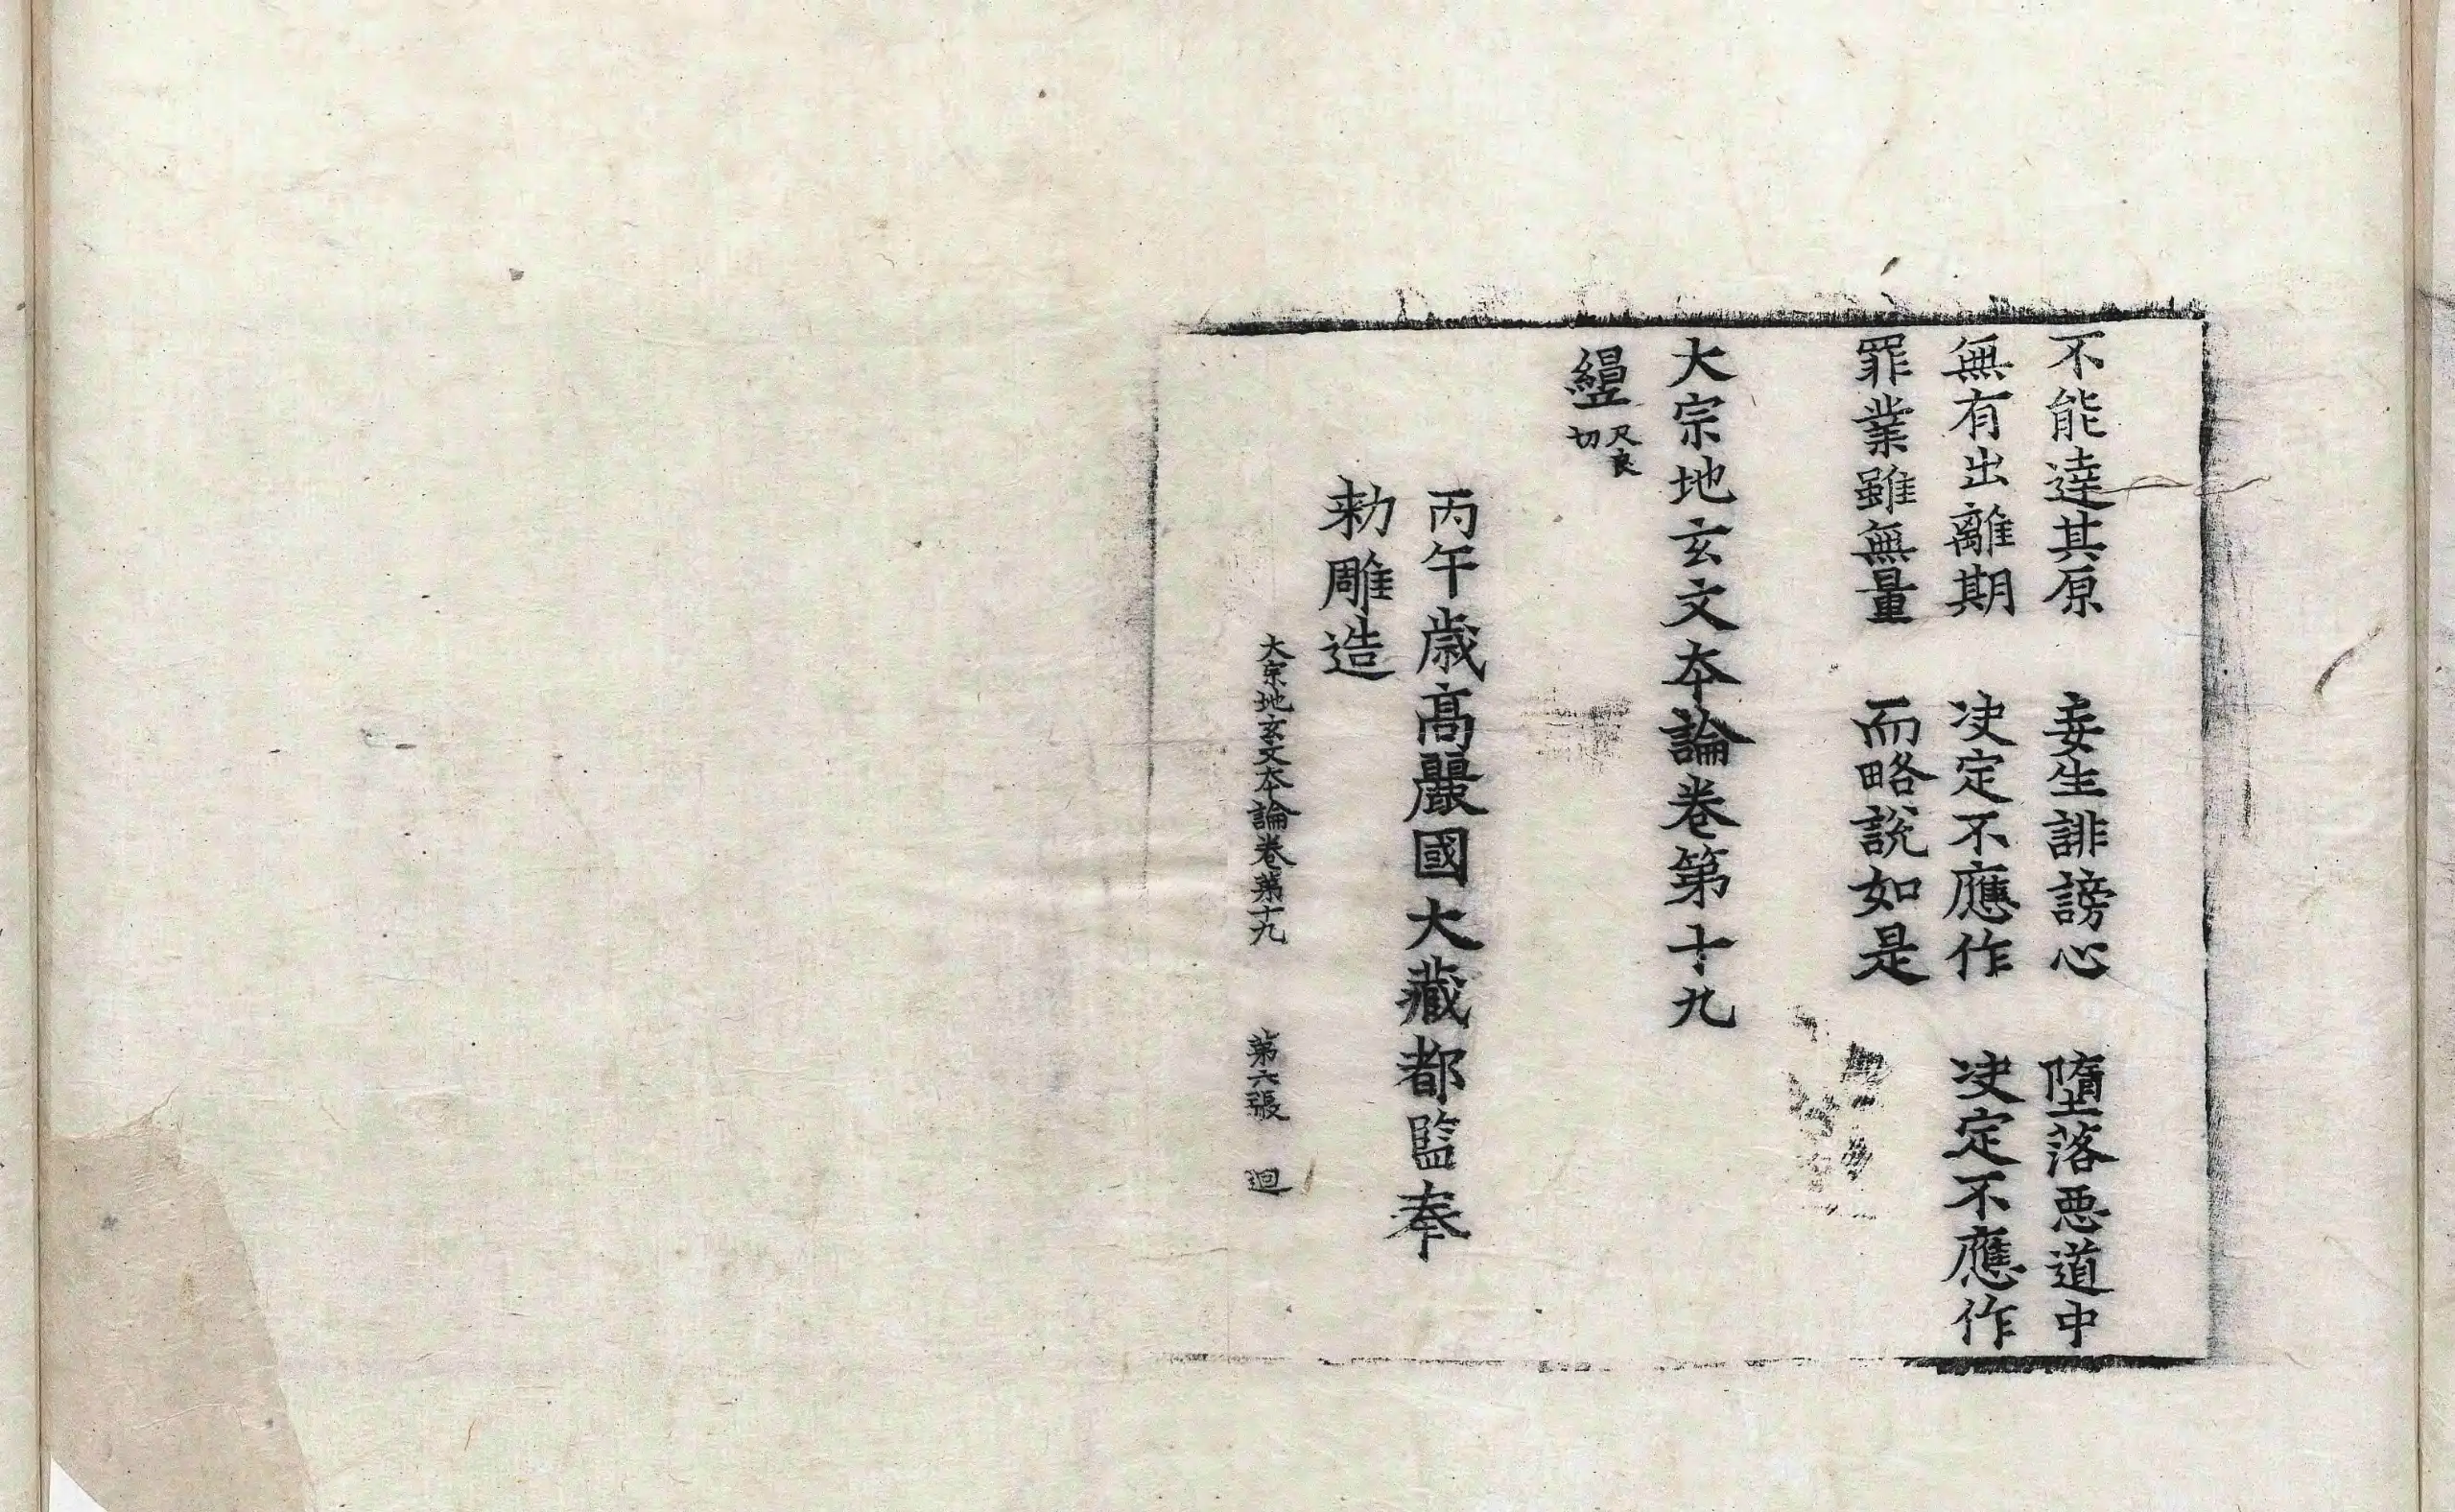 不能達其原　妄生誹謗心　墮落悪道中
無有出離期　决定不應作　决定不應作
罪業雖無量　而略說如是
大宗地玄文夲論卷第十九
良切
丙午歳髙麗國大藏都監奉
勅雕造
大宗地玄文夲論卷第十九　第六張　迴